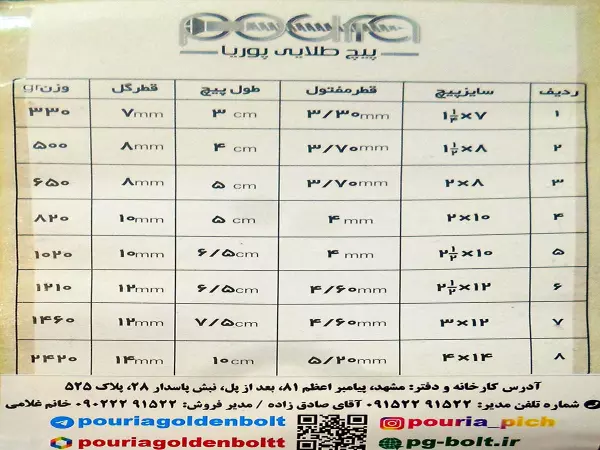 pouria
پیچ طلایی پوریا
ردیف سایزپیچ قطرمفتول طول پیچ قطرگل وزنgr
۱ ۱½×۷ ۳/۳۰mm ۳ cm ۷mm ۳۳۰
۲ ۱½×۸ ۳/۷۰mm ۴ cm ۸mm ۵۰۰
۳ ۲×۸ ۳/۷۰mm ۵ cm ۸mm ۶۵۰
۴ ۲×۱۰ ۴ mm ۵ cm ۱۰mm ۸۲۰
۵ ۲½×۱۰ ۴ mm ۶/۵cm ۱۰mm ۱۰۲۰
۶ ۲½×۱۲ ۴/۶۰mm ۶/۵cm ۱۲mm ۱۲۱۰
۷ ۳×۱۲ ۴/۶۰mm ۷/۵cm ۱۲mm ۱۴۶۰
۸ ۴×۱۴ ۵/۲۰mm ۱۰cm ۱۴mm ۲۴۲۰
آدرس کارخانه و دفتر: مشهد، پیامبر اعظم ۸۱، بعد از پل، نبش پاسدار ۲۸، پلاک ۵۲۵
شماره تلفن مدیر: ۹۱۵۲۲ ۰۹۱۵۲۲ آقای صادق زاده / مدیر فروش: ۹۱۵۲۲ ۰۹۰۲۲۲ خانم غلامی
pouriagoldenbolt pouria_pich
pouriagoldenboltt pg-bolt.ir